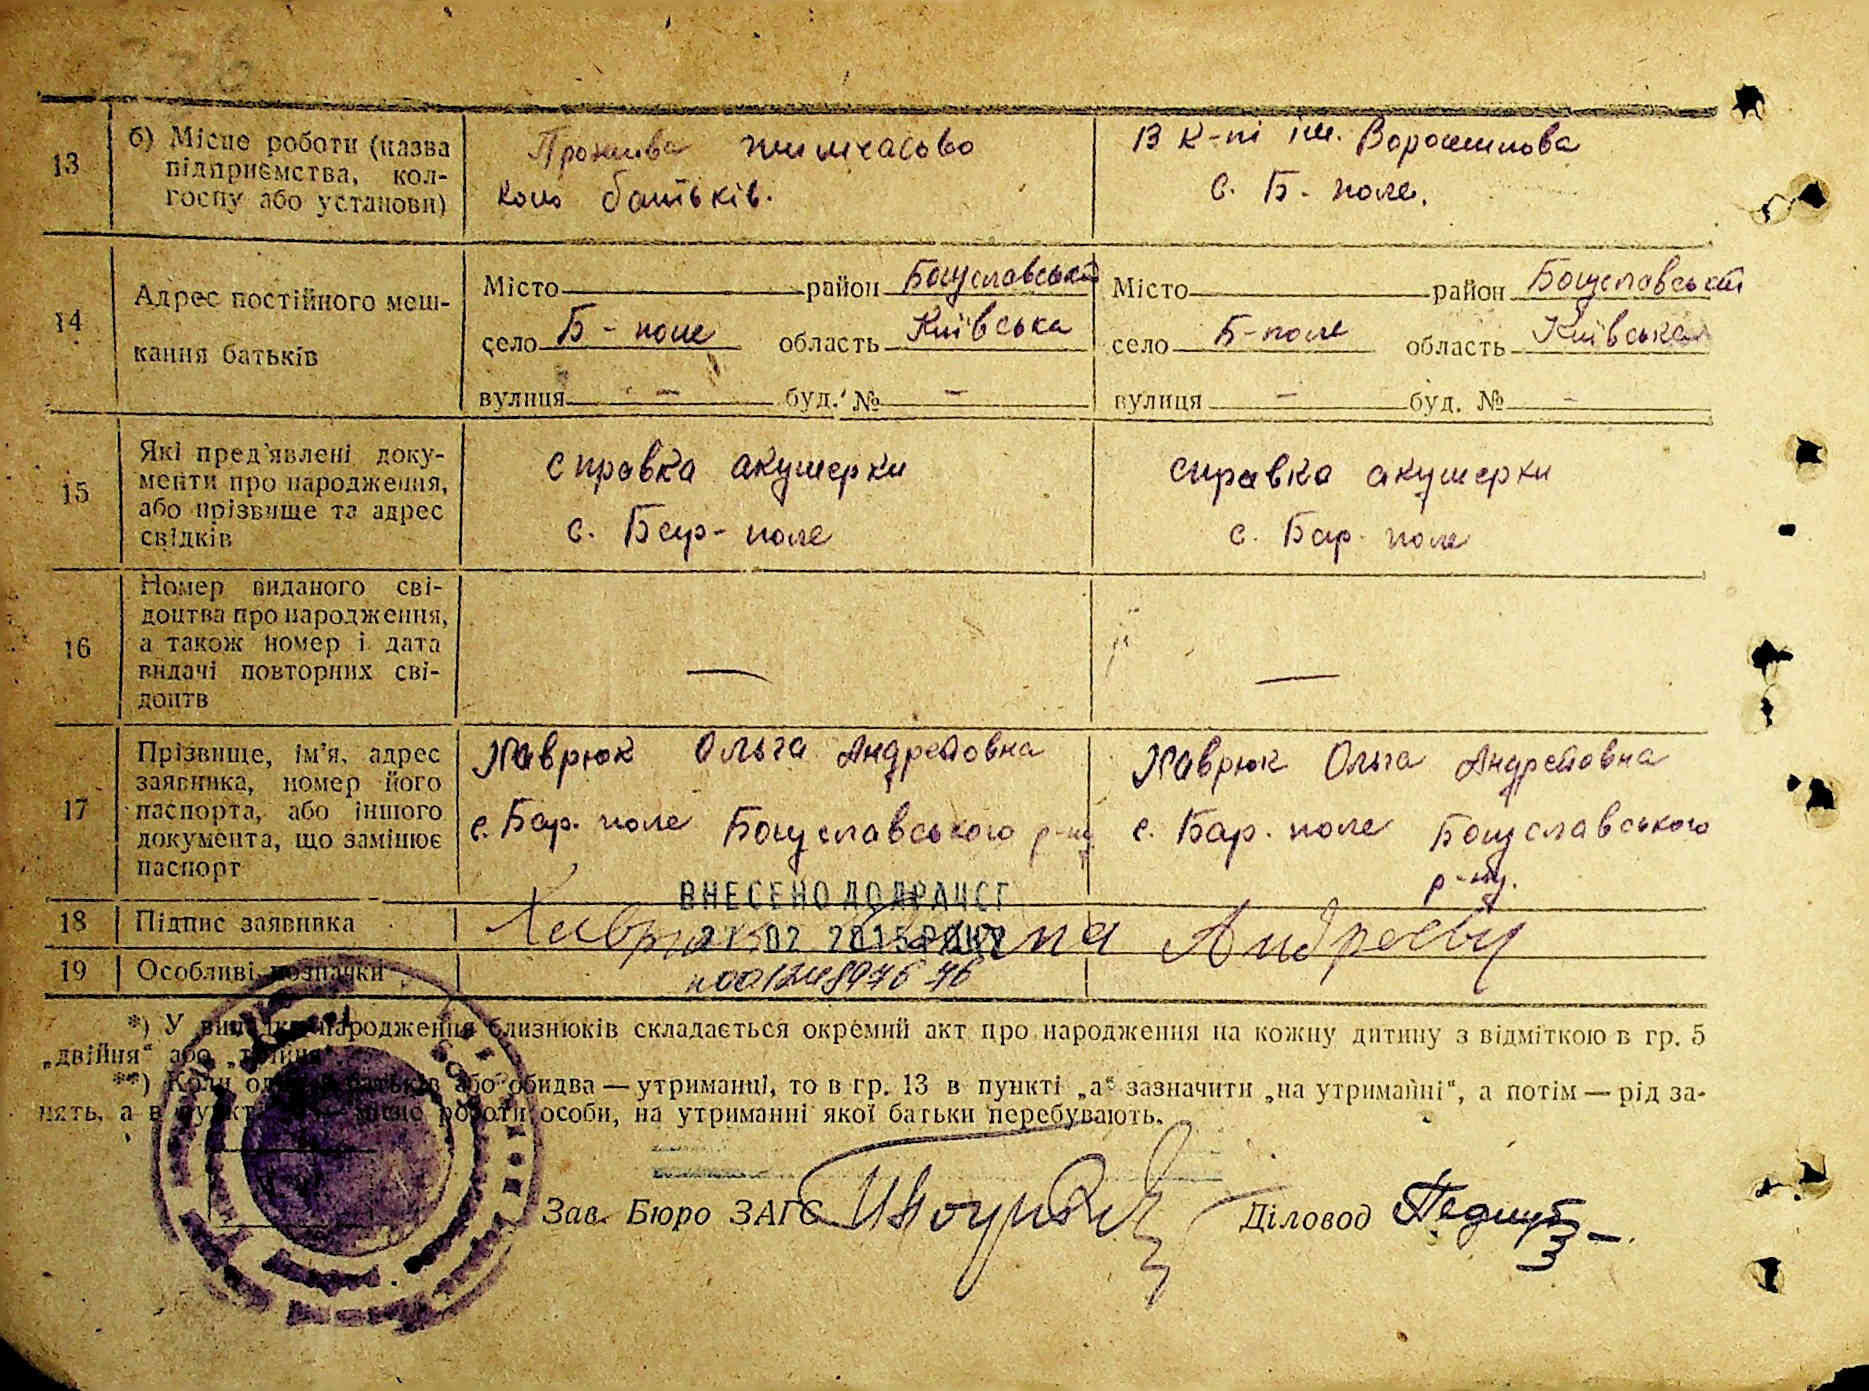 13
б) Місце роботи (назва
підприємства, кол-
госпу або установи)
Прожива тимчасово
коло батьків.
В к-пі ім. Ворошилова
с. Б-поле.
14
Адрес постійного меш-
кання батьків
Місто район Богуславський
село Б-поле область Київська
вулиця — буд. № —
Місто район Богуславський
село Б-поле область Київська
вулиця — буд. № —
15
Які пред'явлені доку-
менти про народження,
або прізвище та адрес
свідків
справка акушерки
с. Бар-поле
справка акушерки
с. Бар. поле
16
Номер виданого сві-
доцтва про народження,
а також номер і дата
видачі повторних сві-
доцтв
—
—
17
Прізвище, ім'я, адрес
заявника, номер його
паспорта, або іншого
документа, що замінює
паспорт
Хаврюк Ольга Андреївовна
с. Бар. поле Богуславського р-ну
Хаврюк Ольга Андреївовна
с. Бар. поле Богуславського
р-ну.
ВНЕСЕНО ДО ДРАЦСГ
18
Підпис заявника
19
Особливі позначки
*) У випадку народження близнюків складається окремий акт про народження на кожну дитину з відміткою в гр. 5
„двійня“ або „трійня“.
**) Коли один з батьків або обидва — утриманці, то в гр. 13 в пункті „а“ зазначити „на утриманні“, а потім — рід за-
нять, а в пункті місце роботи особи, на утриманні якої батьки перебувають.
Зав. Бюро ЗАГС
Діловод